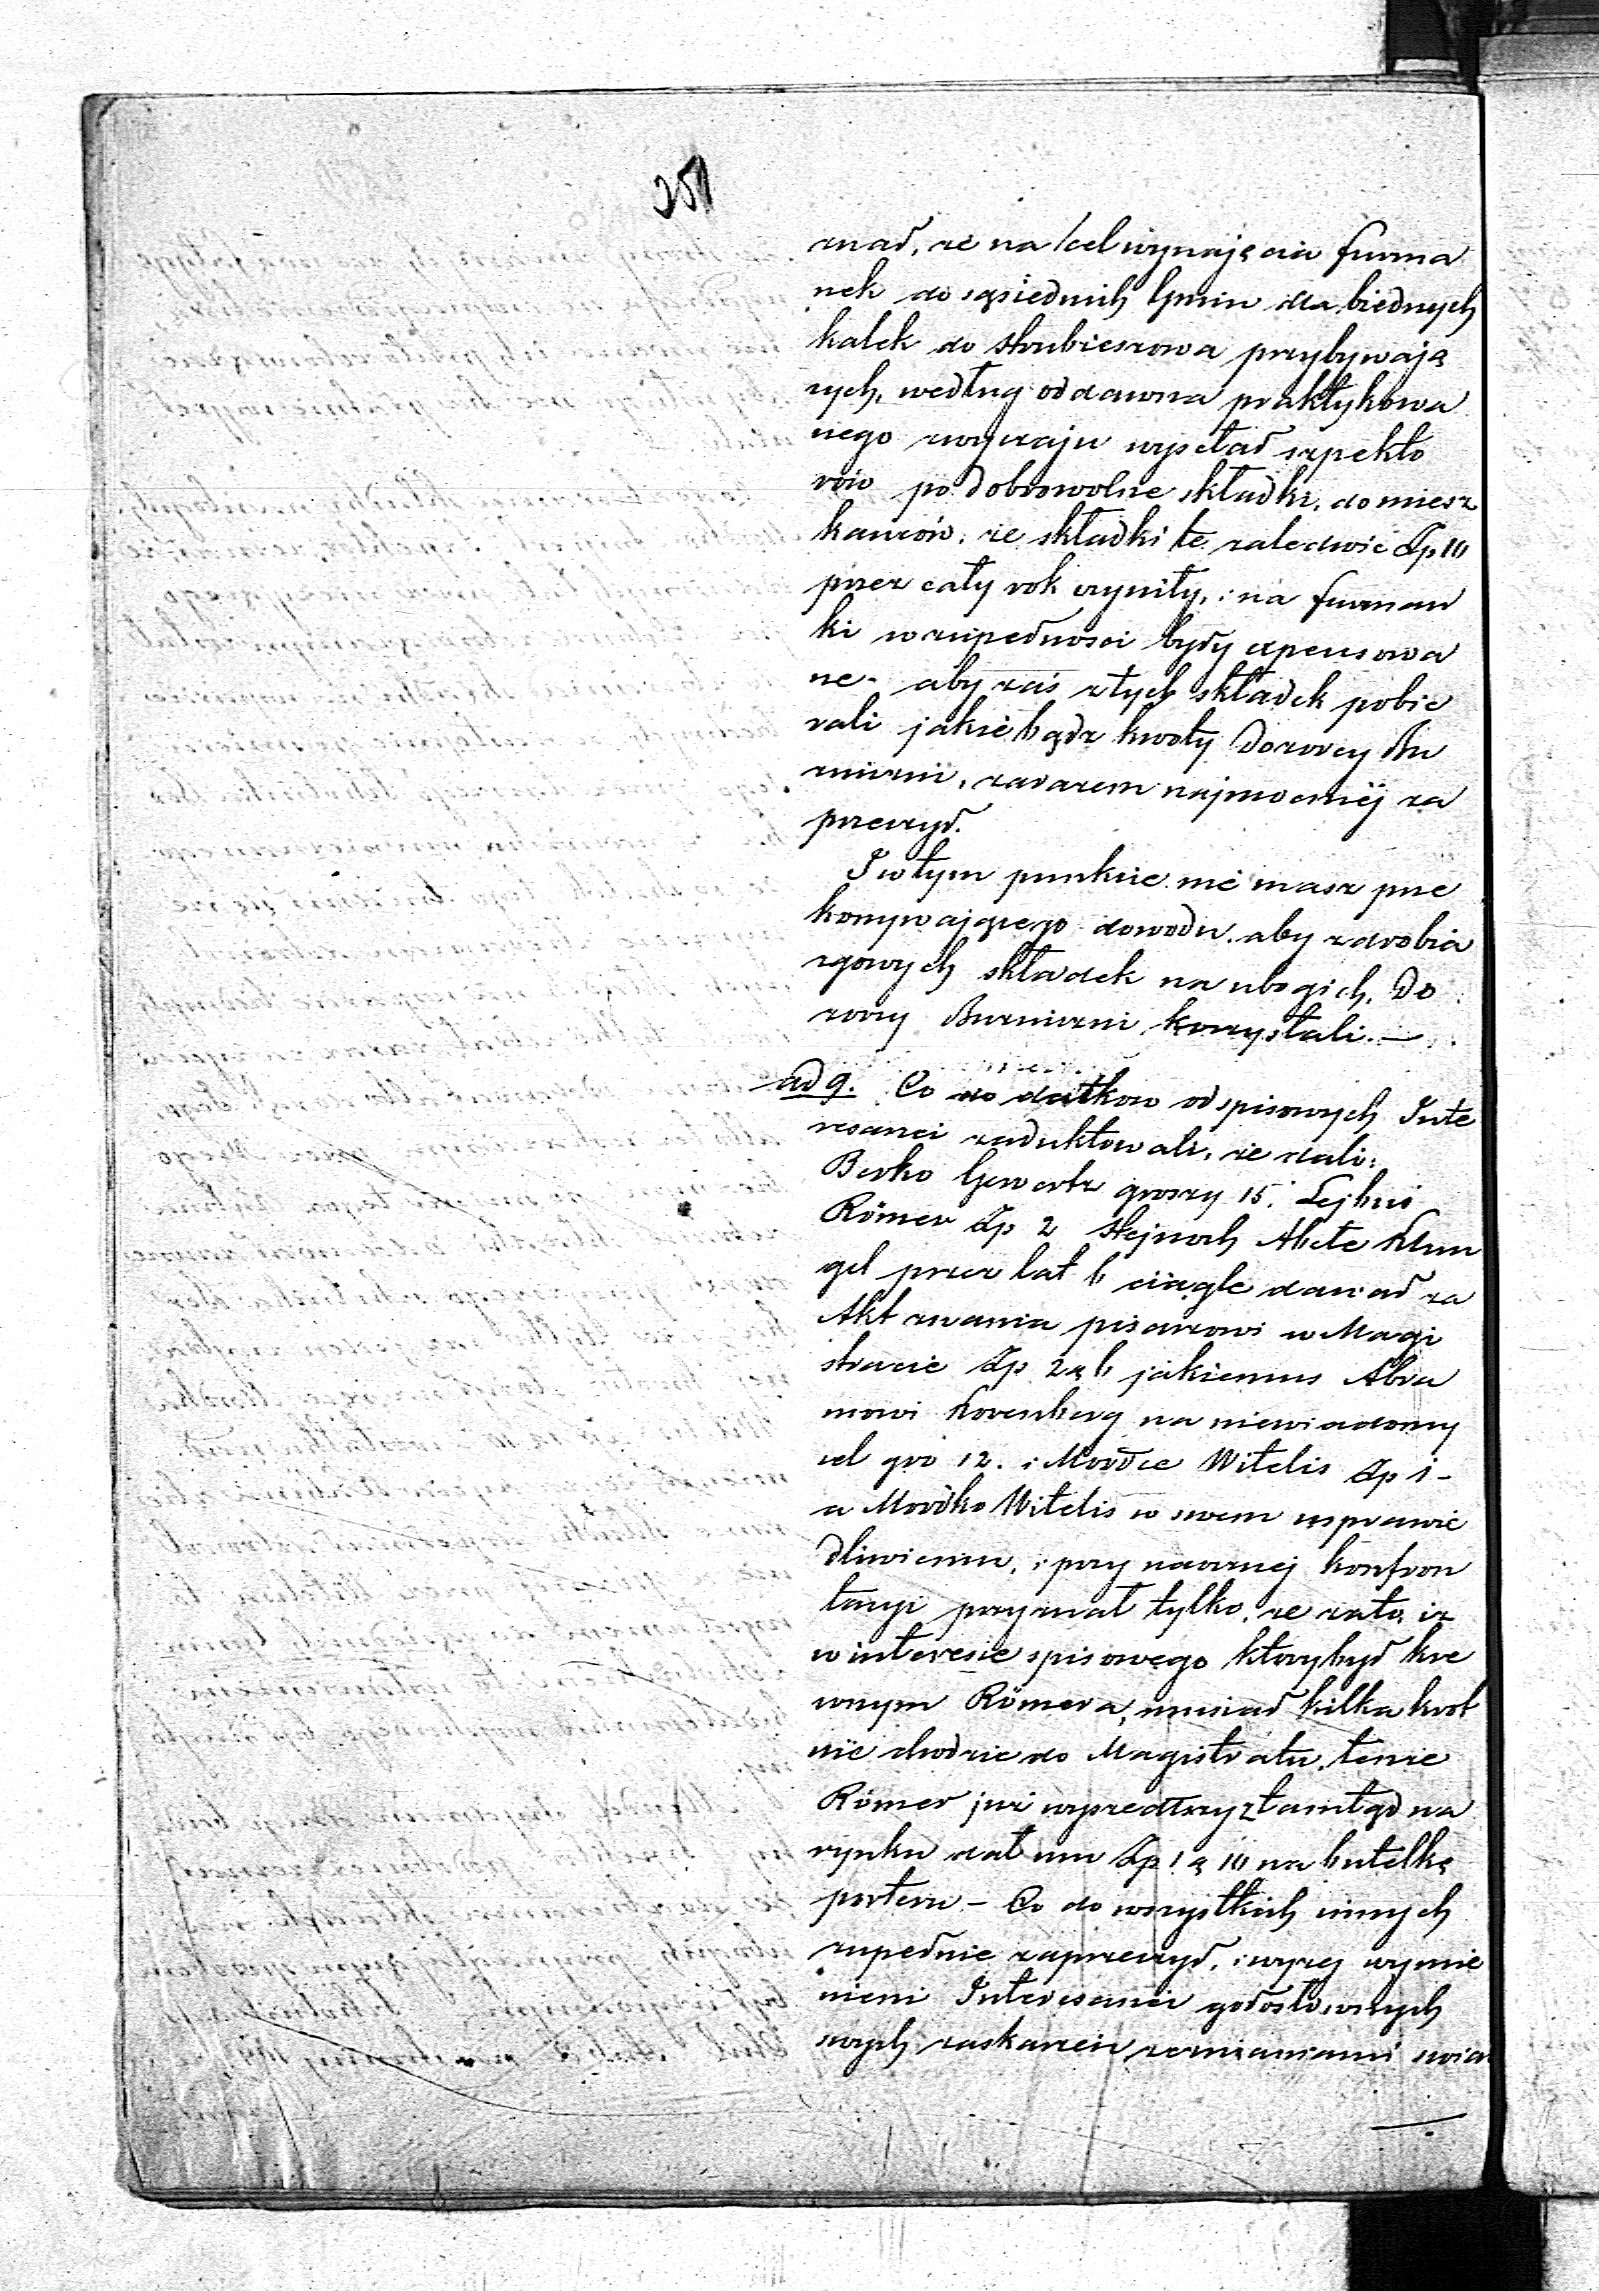 251
znał, że na cel wynajęcia furma
nek do sąsiednich Gmin dla biednych
kalek do Hrubieszowa przybywają
cych, według oddawna praktykowa
nego zwyczaju wysełał szpekto
rów po dobrowolne składki, do miesz
kańców, że składki te zaledwie Zp 10
przez cały rok czyniły, i na furman
ki w zupełności były expensowa
ne - aby zaś z tych składek pobie
rali jakie bądz kwoty Dozorcy Bu
żniczni, zarazem najmocniej za
przeczył.
I w tym punkcie nie masz prze
konywającego dowodu, aby z drobia
zgowych składek na ubogich, Do
zorcy Burniczni korzystali. —
ad 9. Co do datkow od spisowych Inte
resanci zaduktowali, że dali:
Berko Gewertz groszy 15. Lejbuś
Römer Zp 2 Hejnoch Abele Klun
gel przez lat 6 ciągle dawał za
Akt znania pisarzowi w Magi
stracie Zp 2 g 6 jakiemus Abra
mowi Korenberg na niewiadomy
cel gro 12. i Mordce Witelis Zp 1 -
a Mordko Witelis w swem usprawie
dliwieniu, i przy naocznej konfron
tacyi przyznał tylko, że zato, iz
w interesie spisowego ktory był kre
wnym Römera, musiał kilkakrot
nie chodzic do Magistratu, tenze
Römer już wyszedłszy ztamtąd na
rynku dał mu Zp 1 g 10 na butelkę
porteru - Co do wszystkich innych
zupełnie zaprzeczył, i wyzej wymie
nieni Interesanci gołosłownych
swych zaskarzeń zeznaniami swia